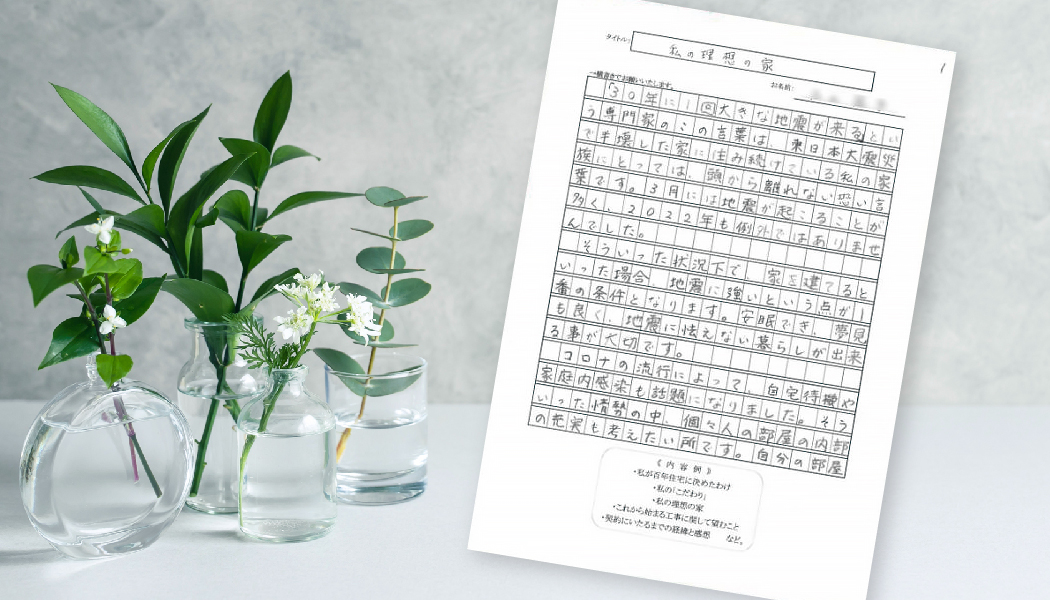 タイトル:
私の理想の家
一横書きでお願いいたします。
お名前:
「30年に1回大きな地震が来るとい
う専門家のこの言葉は、東日本大震災
で半壊した家に住み続けている私の家
族にとっては、頭から離れない恐い言
葉です。3月には地震が起こることが
多く、2022年も例外ではありませ
んでした。
そういった状況下で、家を建てると
いった場合、地震に強いという点が1
番の条件となります。安眠でき、夢見
も良く、地震に怯えない暮らしが出来
る事が大切です。
コロナの流行によって、自宅待機や
家庭内感染も話題になりました。そう
いった情勢の中、個々人の部屋の内部
の充実も考えたい所です。自分の部屋
《内容例》
・私が百年住宅に決めたわけ
・私の「こだわり」
・私の理想の家
・これから始まる工事に関して望むこと
・契約にいたるまでの経緯と感想 など。